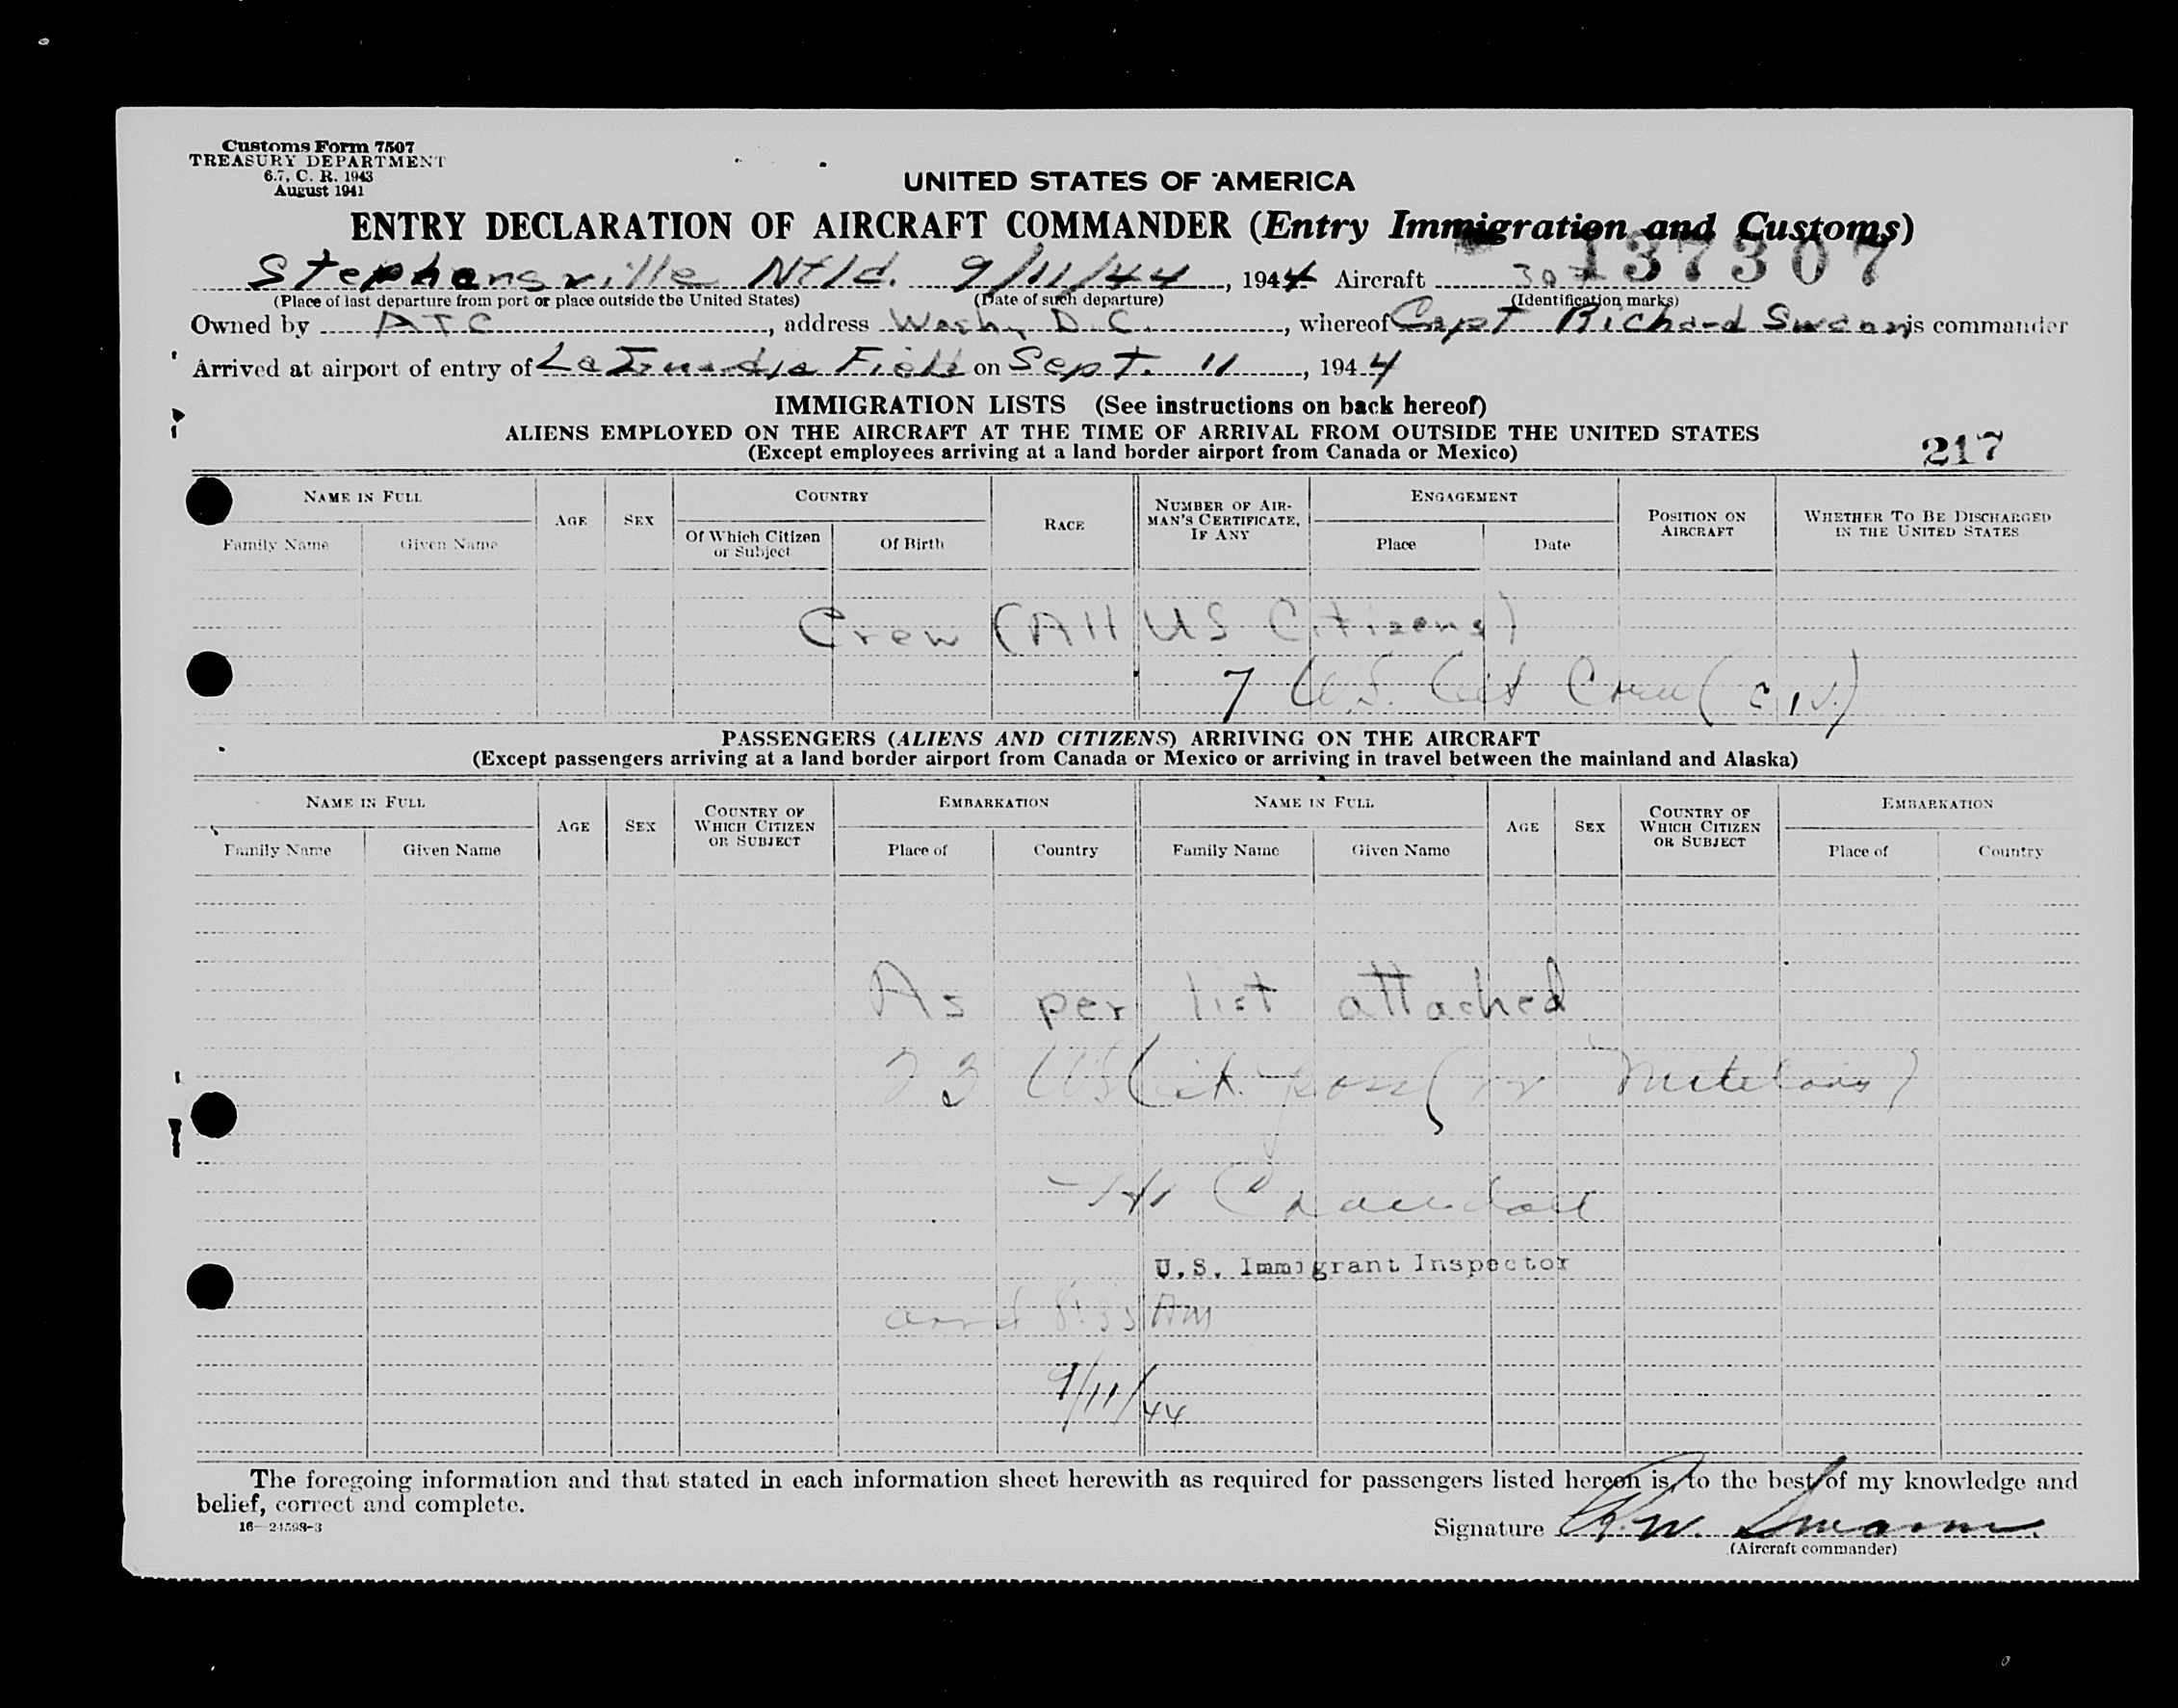 Customs Form 7507
TREASURY DEPARTMENT
6.7, C. R. 1943
August 1941
UNITED STATES OF AMERICA
ENTRY DECLARATION OF AIRCRAFT COMMANDER (Entry Immigration and Customs)
137307
Stephensville Nfld. 9/11/44, 1944 Aircraft 307
(Place of last departure from port or place outside the United States) (Date of such departure) (Identification marks)
Owned by ATC, address Wash, D.C., whereof Capt Richard Swann is commander
Arrived at airport of entry of La Guardia Field on Sept. 11, 1944
IMMIGRATION LISTS (See instructions on back hereof)
ALIENS EMPLOYED ON THE AIRCRAFT AT THE TIME OF ARRIVAL FROM OUTSIDE THE UNITED STATES
(Except employees arriving at a land border airport from Canada or Mexico)
217
NAME IN FULL AGE SEX COUNTRY RACE NUMBER OF AIRMAN'S CERTIFICATE, IF ANY ENGAGEMENT POSITION ON AIRCRAFT WHETHER TO BE DISCHARGED IN THE UNITED STATES
Family Name Given Name Of Which Citizen or Subject Of Birth Place Date
Crew (All US Citizens)
7 U.S. Cit Crew (civ.)
PASSENGERS (ALIENS AND CITIZENS) ARRIVING ON THE AIRCRAFT
(Except passengers arriving at a land border airport from Canada or Mexico or arriving in travel between the mainland and Alaska)
NAME IN FULL AGE SEX COUNTRY OF WHICH CITIZEN OR SUBJECT EMBARKATION NAME IN FULL AGE SEX COUNTRY OF WHICH CITIZEN OR SUBJECT EMBARKATION
Family Name Given Name Place of Country Family Name Given Name Place of Country
As per list attached
23 US Cit.
U.S. Immigrant Inspector
arrd 8:35 AM
9/11/44
The foregoing information and that stated in each information sheet herewith as required for passengers listed hereon is, to the best of my knowledge and
belief, correct and complete.
16—24598-3
Signature R.W. Swann
(Aircraft commander)